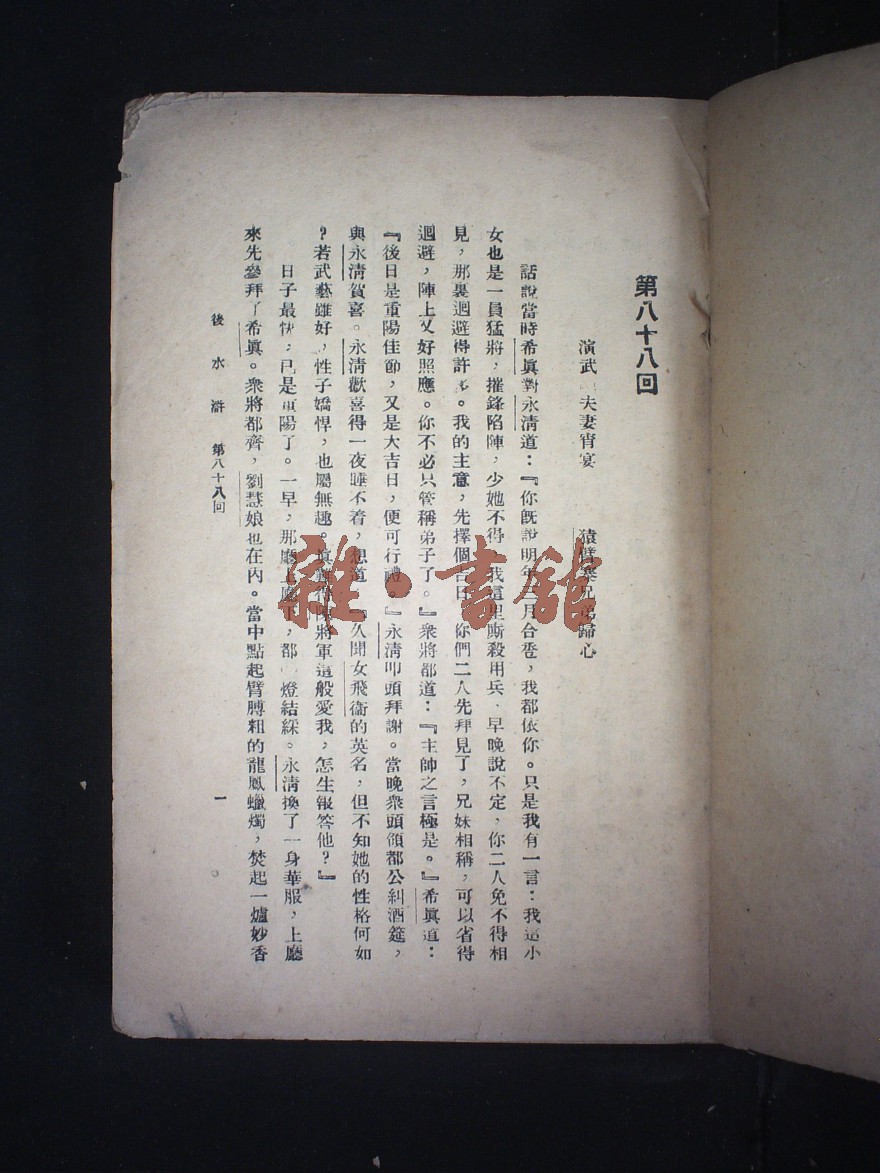 第八十八回
演武 夫妻宵宴 猿臂寨兄弟歸心
話說當時希眞對永淸道：『你旣說明年 月合巹，我都依你。只是我有一言：我這小
女也是一員猛將，摧鋒陷陣，少她不得，我這里厮殺用兵，早晚說不定，你二人免不得相
見，那裏迴避得許多。我的主意，先擇個吉日，你們二人先拜見了，兄妹相稱，可以省得
迴避，陣上又好照應。你不必只管稱弟子了。』衆將都道：『主帥之言極是。』希眞道：
『後日是重陽佳節，又是大吉日，便可行禮。』永淸叩頭拜謝。當晚衆頭領都公糾酒筵，
與永淸賀喜。永淸歡喜得一夜睡不着，想道『久聞女飛衞的英名，但不知她的性格何如
？若武藝雖好，性子嬌悍，也屬無趣。眞難得陳將軍這般愛我，怎生報答他？』
日子最快，已是重陽了。一早，那廳上廳下，都 燈結綵。永淸換了一身華服，上廳
來先參拜了希眞。衆將都齊，劉慧娘也在內。當中點起臂膊粗的龍鳳蠟燭，焚起一爐妙香
後水滸 第八十八回 一
雜·書舘